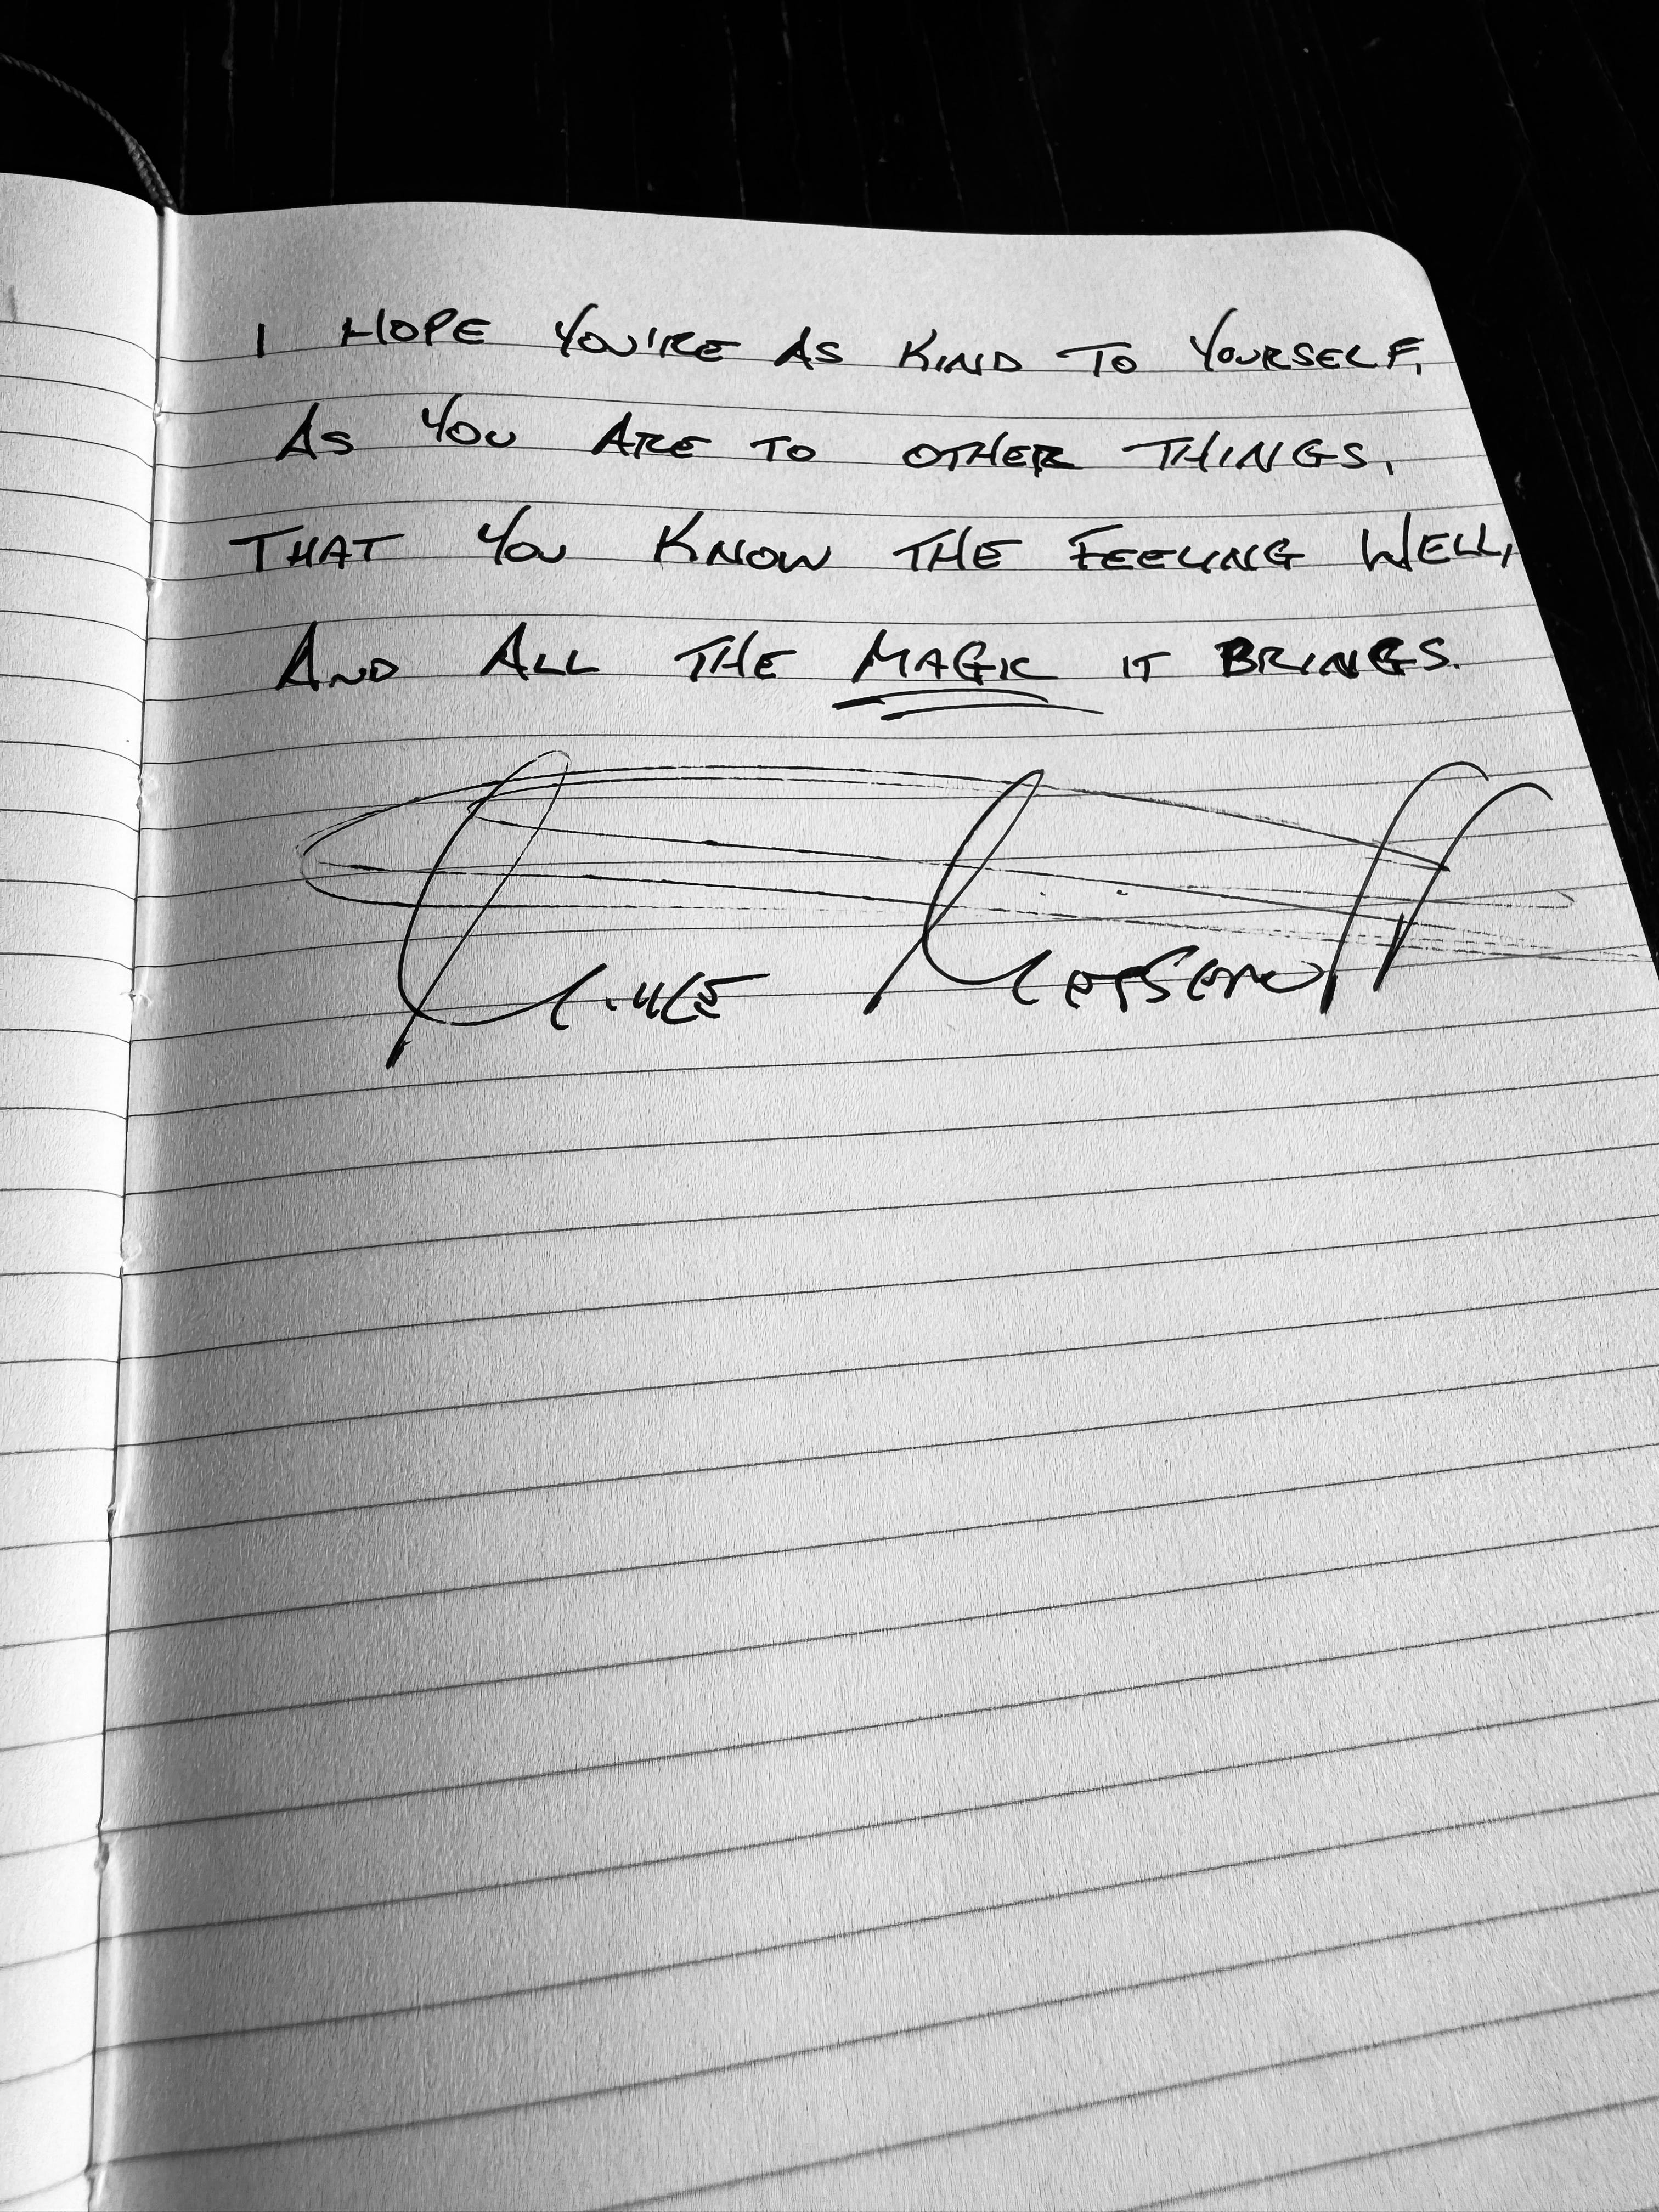 I HOPE YOU'RE AS KIND TO YOURSELF,
AS YOU ARE TO OTHER THINGS,
THAT YOU KNOW THE FEELING WELL,
AND ALL THE MAGIC IT BRINGS.